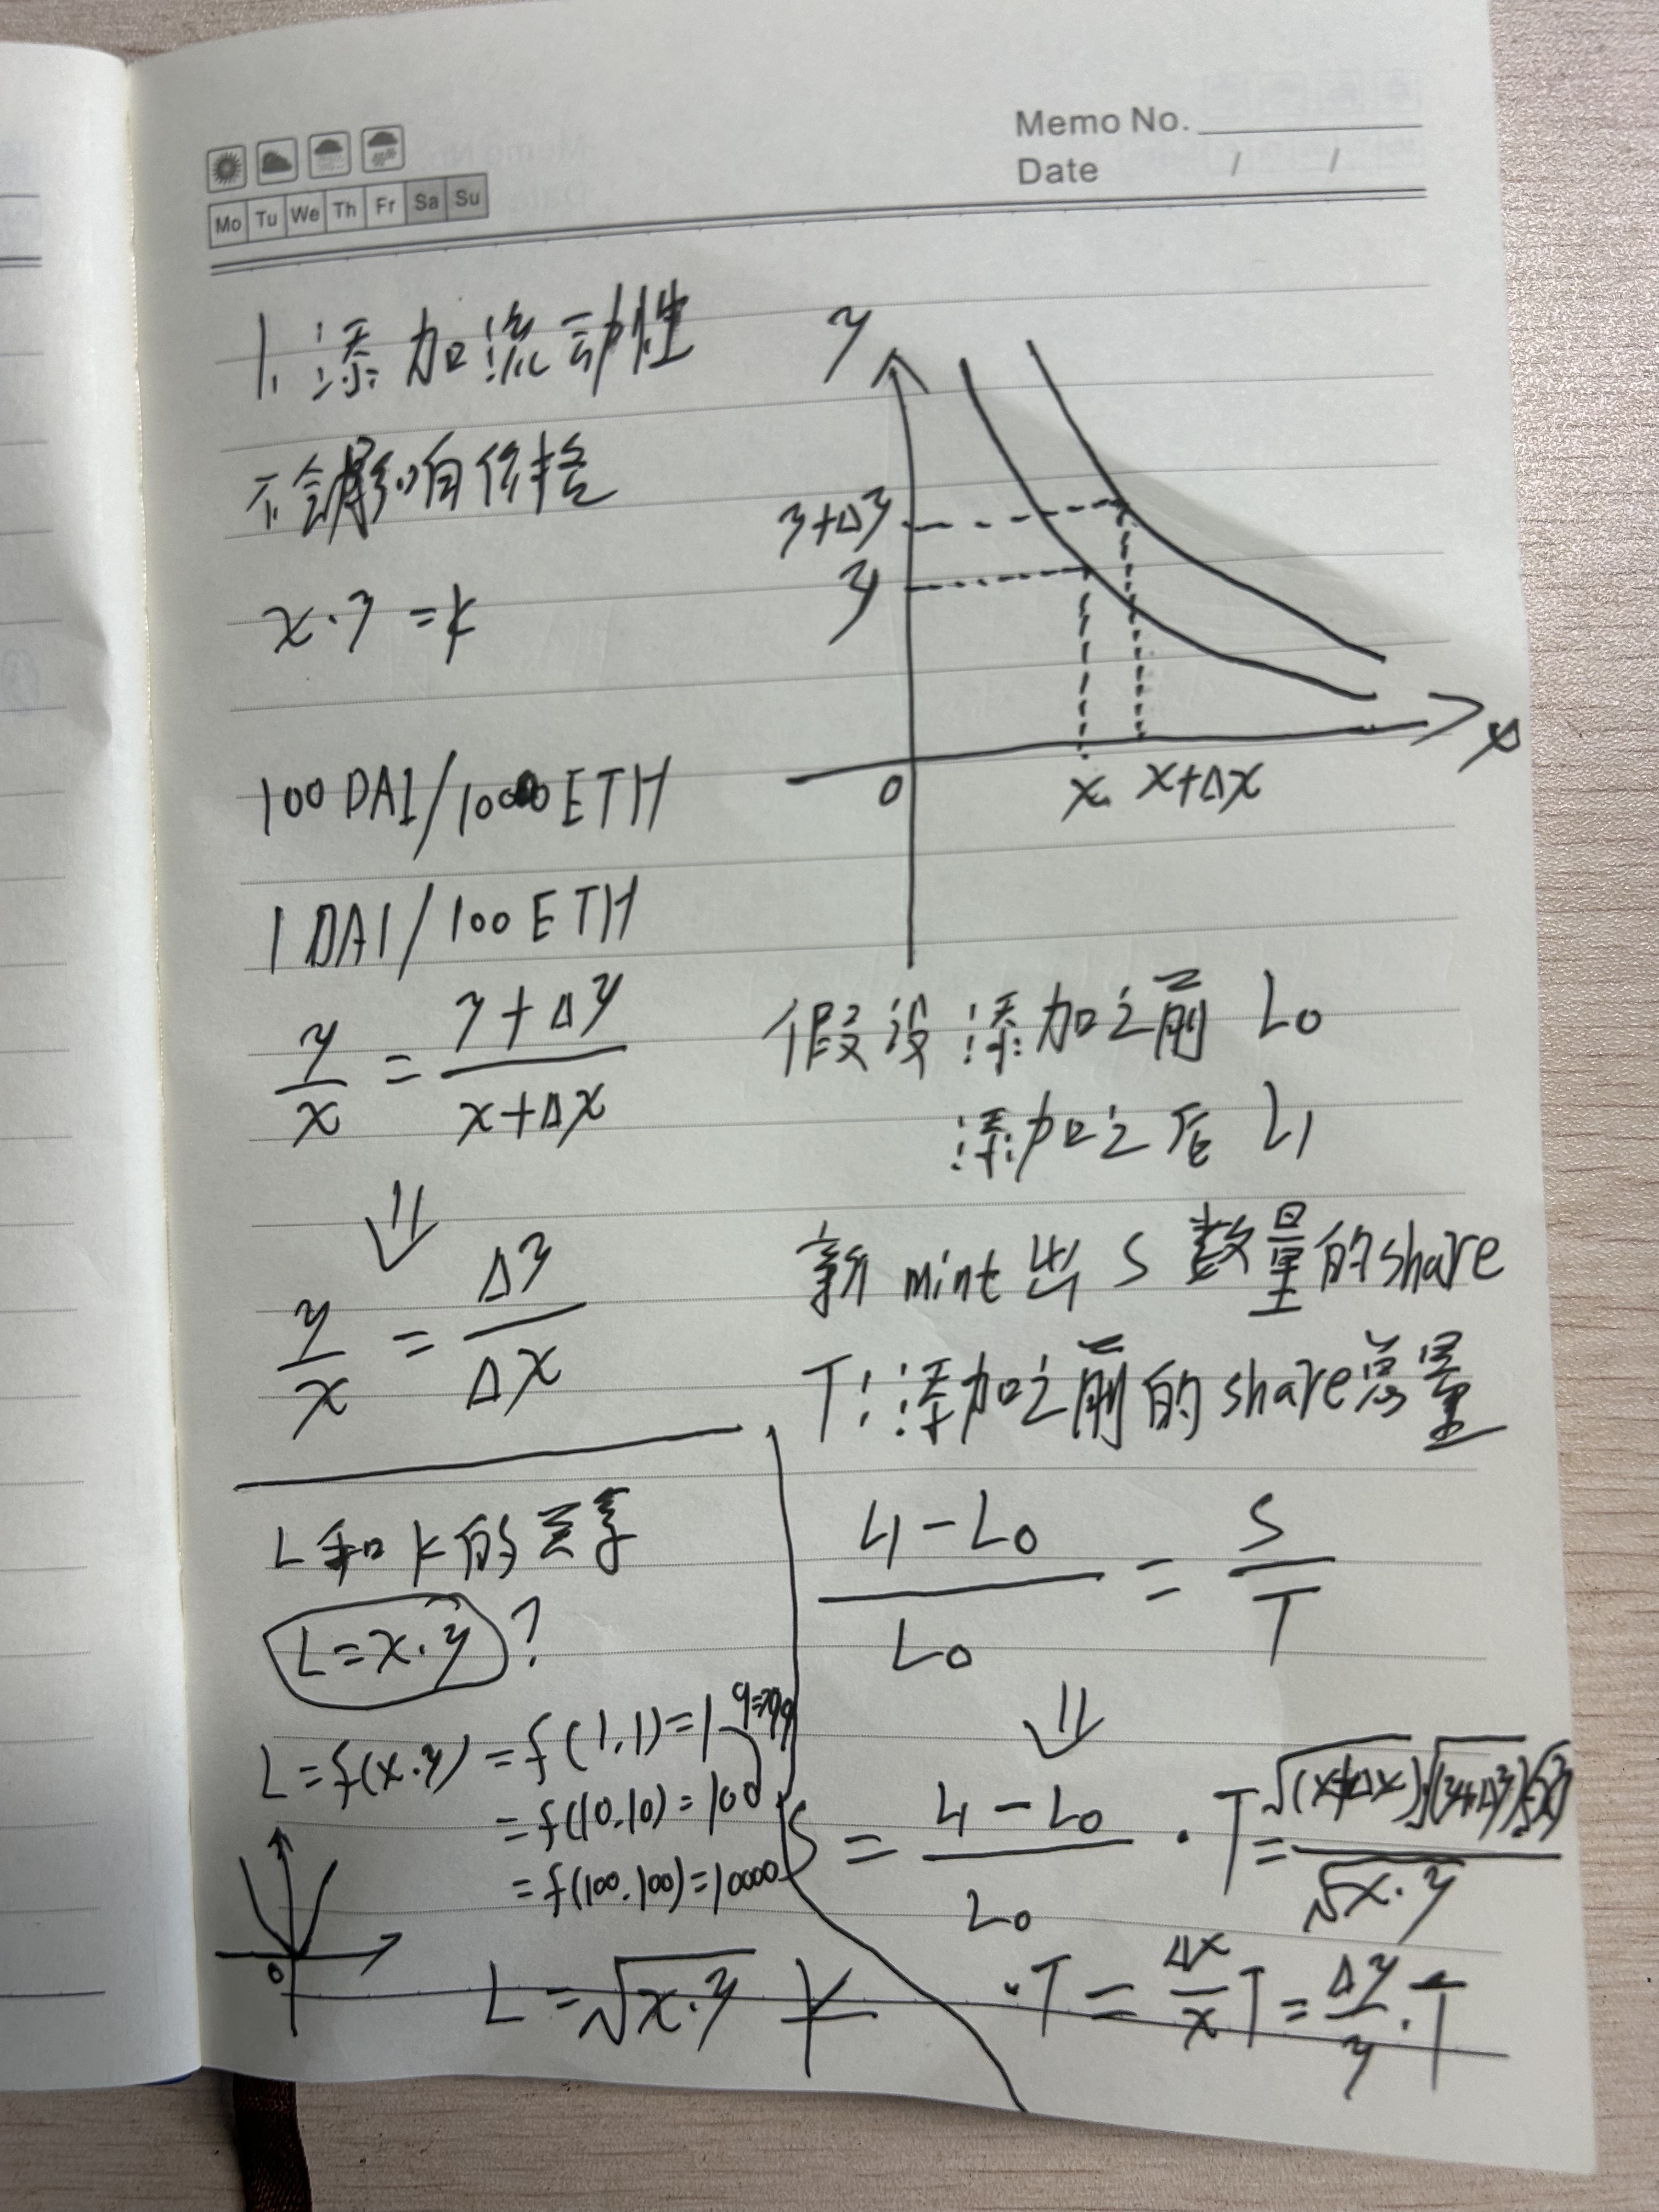 Memo No.
Date / /
Mo Tu We Th Fr Sa Su
1. 添加流动性
不会影响价格
x·y = k
100 DAI/10000 ETH
1 DAI/100 ETH
y/x = (y+Δy)/(x+Δx)
⇓
y/x = Δy/Δx
y
y+Δy
y
0
x
x+Δx
x
假设添加之前 L0
添加之后 L1
新mint出 S 数量的share
T: 添加之前的share总量
(L1-L0)/L0 = S/T
⇓
S = (L1-L0)/L0 · T = (√(x+Δx)·√(y+Δy)-√x·y)/√x·y
·T = Δx/x T = Δy/y · T
L和k的差异
L=x·y ?
L=f(x.y) = f(1.1)=1
= f(10.10) = 100
= f(100.100)=10000
0
L = √x·y